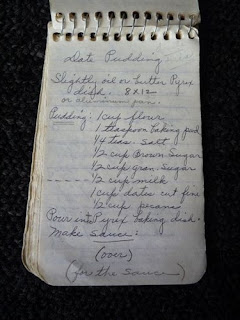 Date Pudding
Slightly oil or butter Pyrex
dish. 8x12
or aluminum pan.
Pudding: 1 cup flour
1 teaspoon baking powd
1/4 teas. salt
1/2 cup Brown Sugar
1/2 cup gran. sugar
1/2 cup milk
1 cup dates cut fine
1/2 cup pecans
Pour into Pyrex baking dish.
Make sauce:
(over)
(for the sauce)